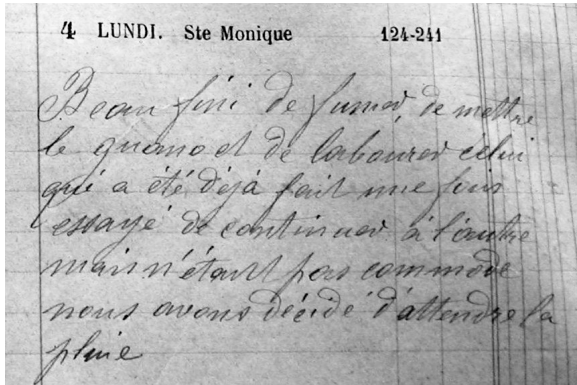 4 LUNDI. Ste Monique 124-241
Beau fini de fumer, de mettre
le guano et de labourer celui
qui a été déjà fait une fois
essayé de continuer à l'autre
mais n'étant pas commode
nous avons décidé d'attendre la
pluie